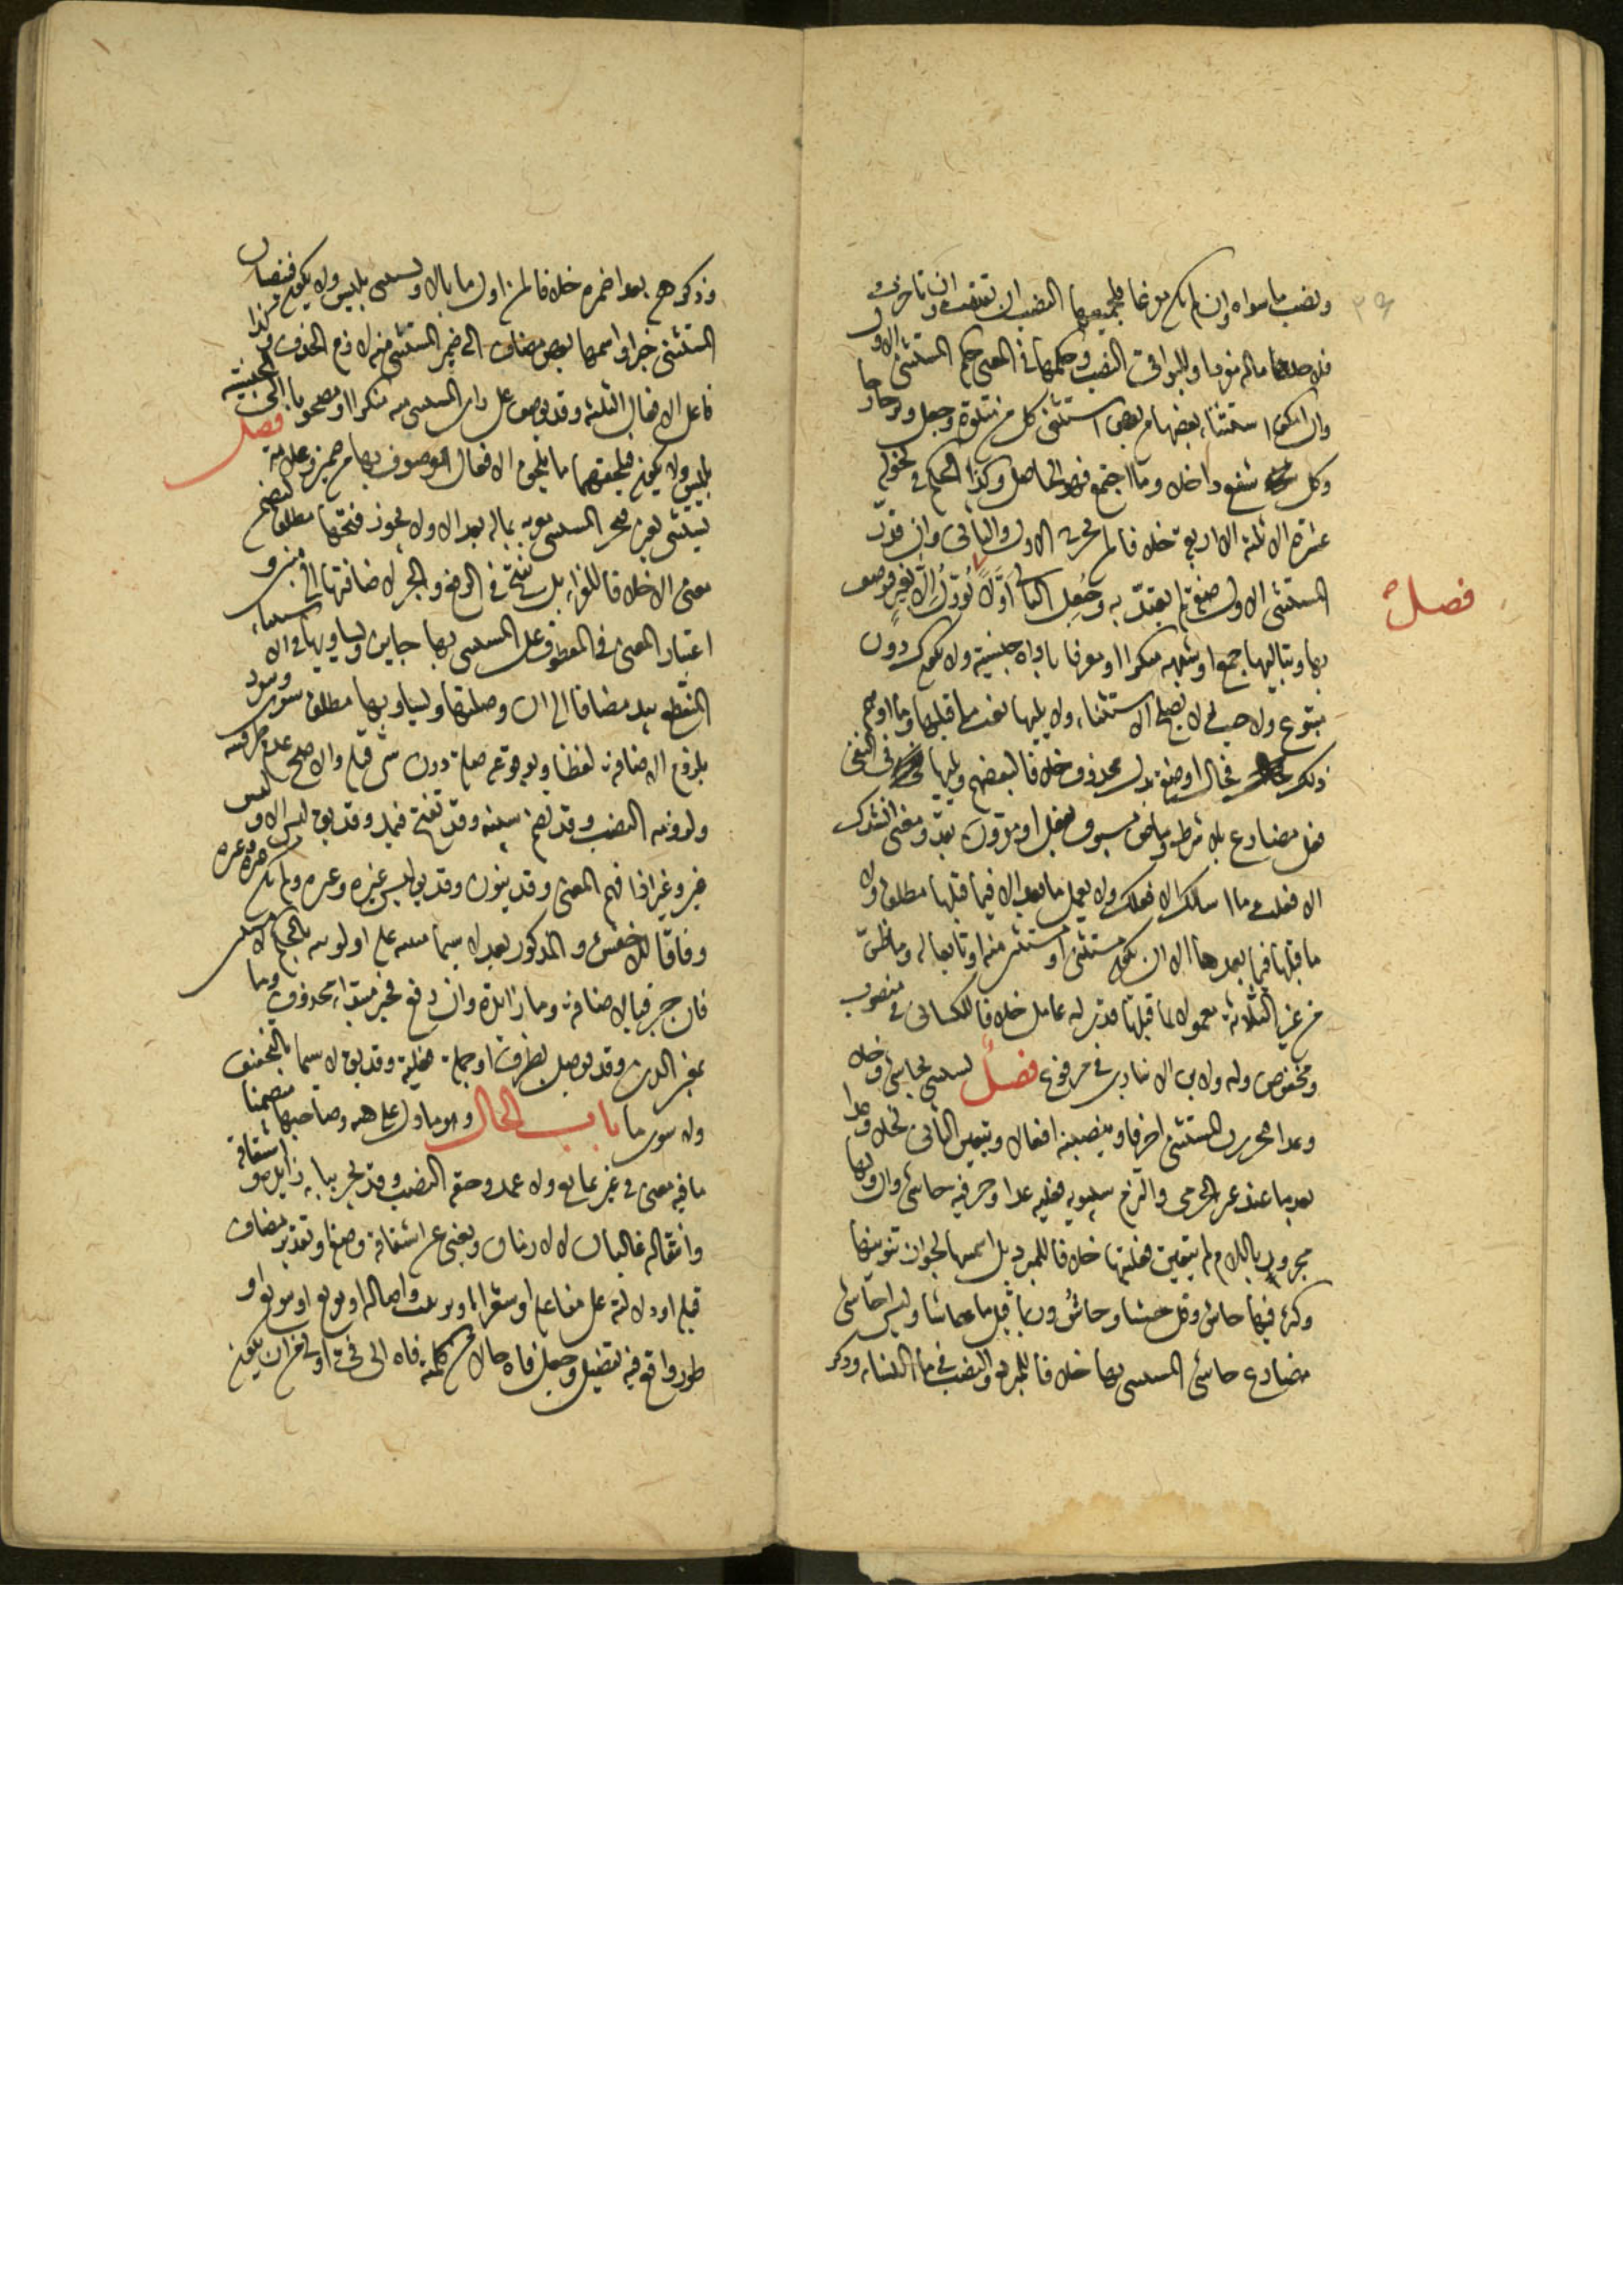 ونصب ما سواه وان لم يكن مفرغا فلجميعها النصب ان تقدمت وان تاخرت
فلاحدها ماله مفردا وللبواقي النصب وحكمها في المعنى حكم المستثنى الاول
وان امكن استثناء بعضها من بعض استثنى كل من متلوه وجعل وتر خارجا
وكل شفع داخلا وما اجتمع فهو الحاصل وكذا الحكم في نحو له
عشرة الا ثلثة الا اربعة خلافا لمخرج الاول والثاني وان قدر
فصل
المستثنى الاول صفة لم يعتد به وجعل الثاني اولا تؤول الا بغير فيوصف
بها وبتاليها جمع او شبهه منكرا او معرفا باداة جنسية ولا يكون دون
متبوع ولا حيث لا يصلح الاستثناء ولا يليها نعت ما قبلها وما اوهم
ذلك فحال او صفة بدل محذوف خلافا لبعضهم ويليها في النفي
فعل مضارع بلا شرط وماض مسبوق بفعل او مقرون بقد ومعنى انشدك
الا فعلت ما اسالك الا فعلك ولا يعمل ما بعد الا فيما قبلها مطلقا ولا
ما قبلها فيما بعدها الا ان يكون مستثنى او مستثنى منه او تابعا له وما ظن
من غير الثلاثة معمولا لما قبلها قدر له عامل خلافا للكسائي في منصوب
ومخفوض وله ولابن الانباري في مرفوع فصل يستثنى بحاشى وخلا
وعدا فيجررن المستثنى احرفا وينصبنه افعالا ويتعين الثاني لخلا وعدا
بعد ما عند غير الجرمي والتزم سيبويه فعلية عدا وحرفية حاشى وان وليها
مجرور باللام لم يتعين فعليتها خلافا للمبرد بل اسميتها لجواز تنوينها
وكثر فيها حاش وقل حشا وحاش وربما قيل ما حاشا وليس احاشي
مضارع حاشى المستثنى بها خلافا للمبرد والنصب في ما النساء وذكر
وذكرهن بعدا مضمرة خلافا لمن اول ما بالا ويستثنى بليس ولا يكون فينصبان
المستثنى خبرا واسمهما بعض مضاف الى ضمير المستثنى منه لازم الحذف وكذا
فاعل الافعال الثلثة وقد يوصف على راي المستثنى منه منكرا او مصحوبا الجنسية
بليس ولا يكون فيلحقهما ما يلحق الافعال الموصوف بها من ضمير وعلامة فصل
يستثنى بغير فتجر المستثنى معربة بماله بعد الا ولا يجوز فتحها مطلقا لتضمن
معنى الا خلافا للفراء بل تفتح في الرفع والجر لاضافتها الى مبني و
اعتبار المعنى في المعطوف على المستثنى بها جائز ويساويها في الاستثناء
المنقطع بيد مضافا الى ان وصلتها ويساويها مطلقا سوى وسوا
بلزوم الاضافة لفظا وبوقوعه صلة دون شيء قبله والاصح عدم ظرفيته
ولزومه النصب وقد تضم سينه وقد تفتح فيمد وقد يقال ليس الا وليس
غير وغير اذا فهم المعنى وقد ينون وقد يقال ليس غيره وغيره ولم يكن غيره وغيره
وفاقا للاخفش والمذكور بعد لا سيما منبه على اولويته بالحكم لا مستثنى
فان جر فبالاضافة وما زائدة وان رفع فخبر مبتدا محذوف وما
بمعنى الذي وقد توصل بظرف او جملة فعلية وقد يقال لا سيما بالتخفيف
ولا سوى ما باب الحال وهو ما دل على هيئة وصاحبها متضمنا
ما فيه معنى في غير تابع ولا عمدة وحقه النصب وقد يجر بباء زائدة واشتقاقه
وانتقاله غالبان لا لازمان ويغني عن اشتقاقه وصفه او تقدير مضاف
قبله او دلالته على مفاعلة او سعر او ترتيب او اصالة او تفريع او تنويع او
طور واقع فيه تفضيل وجعل فاه حالا من كلمته فاه الى في اولى من ان يكون